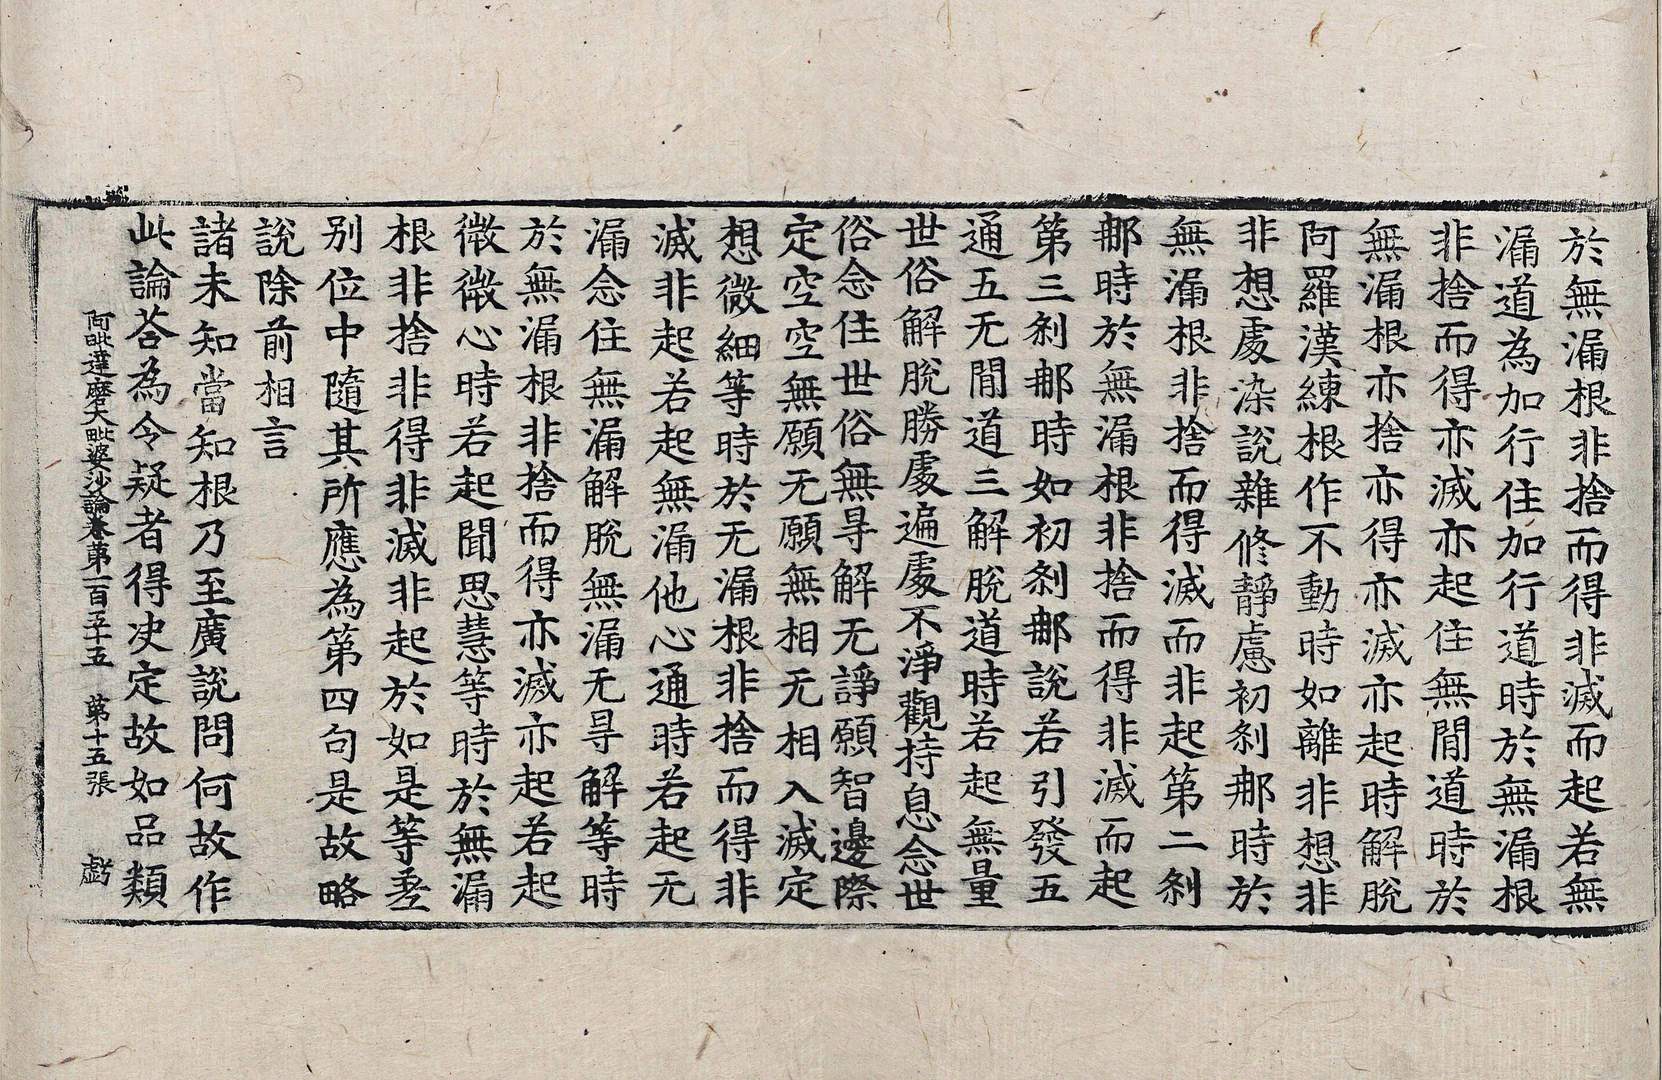 於無漏根非捨而得非滅而起若無
漏道為加行住加行道時於無漏根
非捨而得亦滅亦起住無閒道時於
無漏根亦捨亦得亦滅亦起時解脫
阿羅漢練根作不動時如離非想非
非想處染說雜修靜慮初刹那時於
無漏根非捨而得滅而非起第二刹
那時於無漏根非捨而得非滅而起
第三刹那時如初刹那說若引發五
通五无閒道三解脫道時若起無量
世俗解脫勝處遍處不淨觀持息念世
俗念住世俗無㝵解无諍願智邊際
定空空無願无願無相无相入滅定
想微細等時於无漏根非捨而得非
滅非起若起無漏他心通時若起无
漏念住無漏解脫無漏无㝵解等時
於無漏根非捨而得亦滅亦起若起
微微心時若起聞思慧等時於無漏
根非捨非得非滅非起於如是等差
别位中隨其所應為第四句是故略
說除前相言
諸未知當知根乃至廣說問何故作
此論荅為令疑者得决定故如品類
阿毗達磨大毗婆沙論卷第一百五十五 第十五張 虧